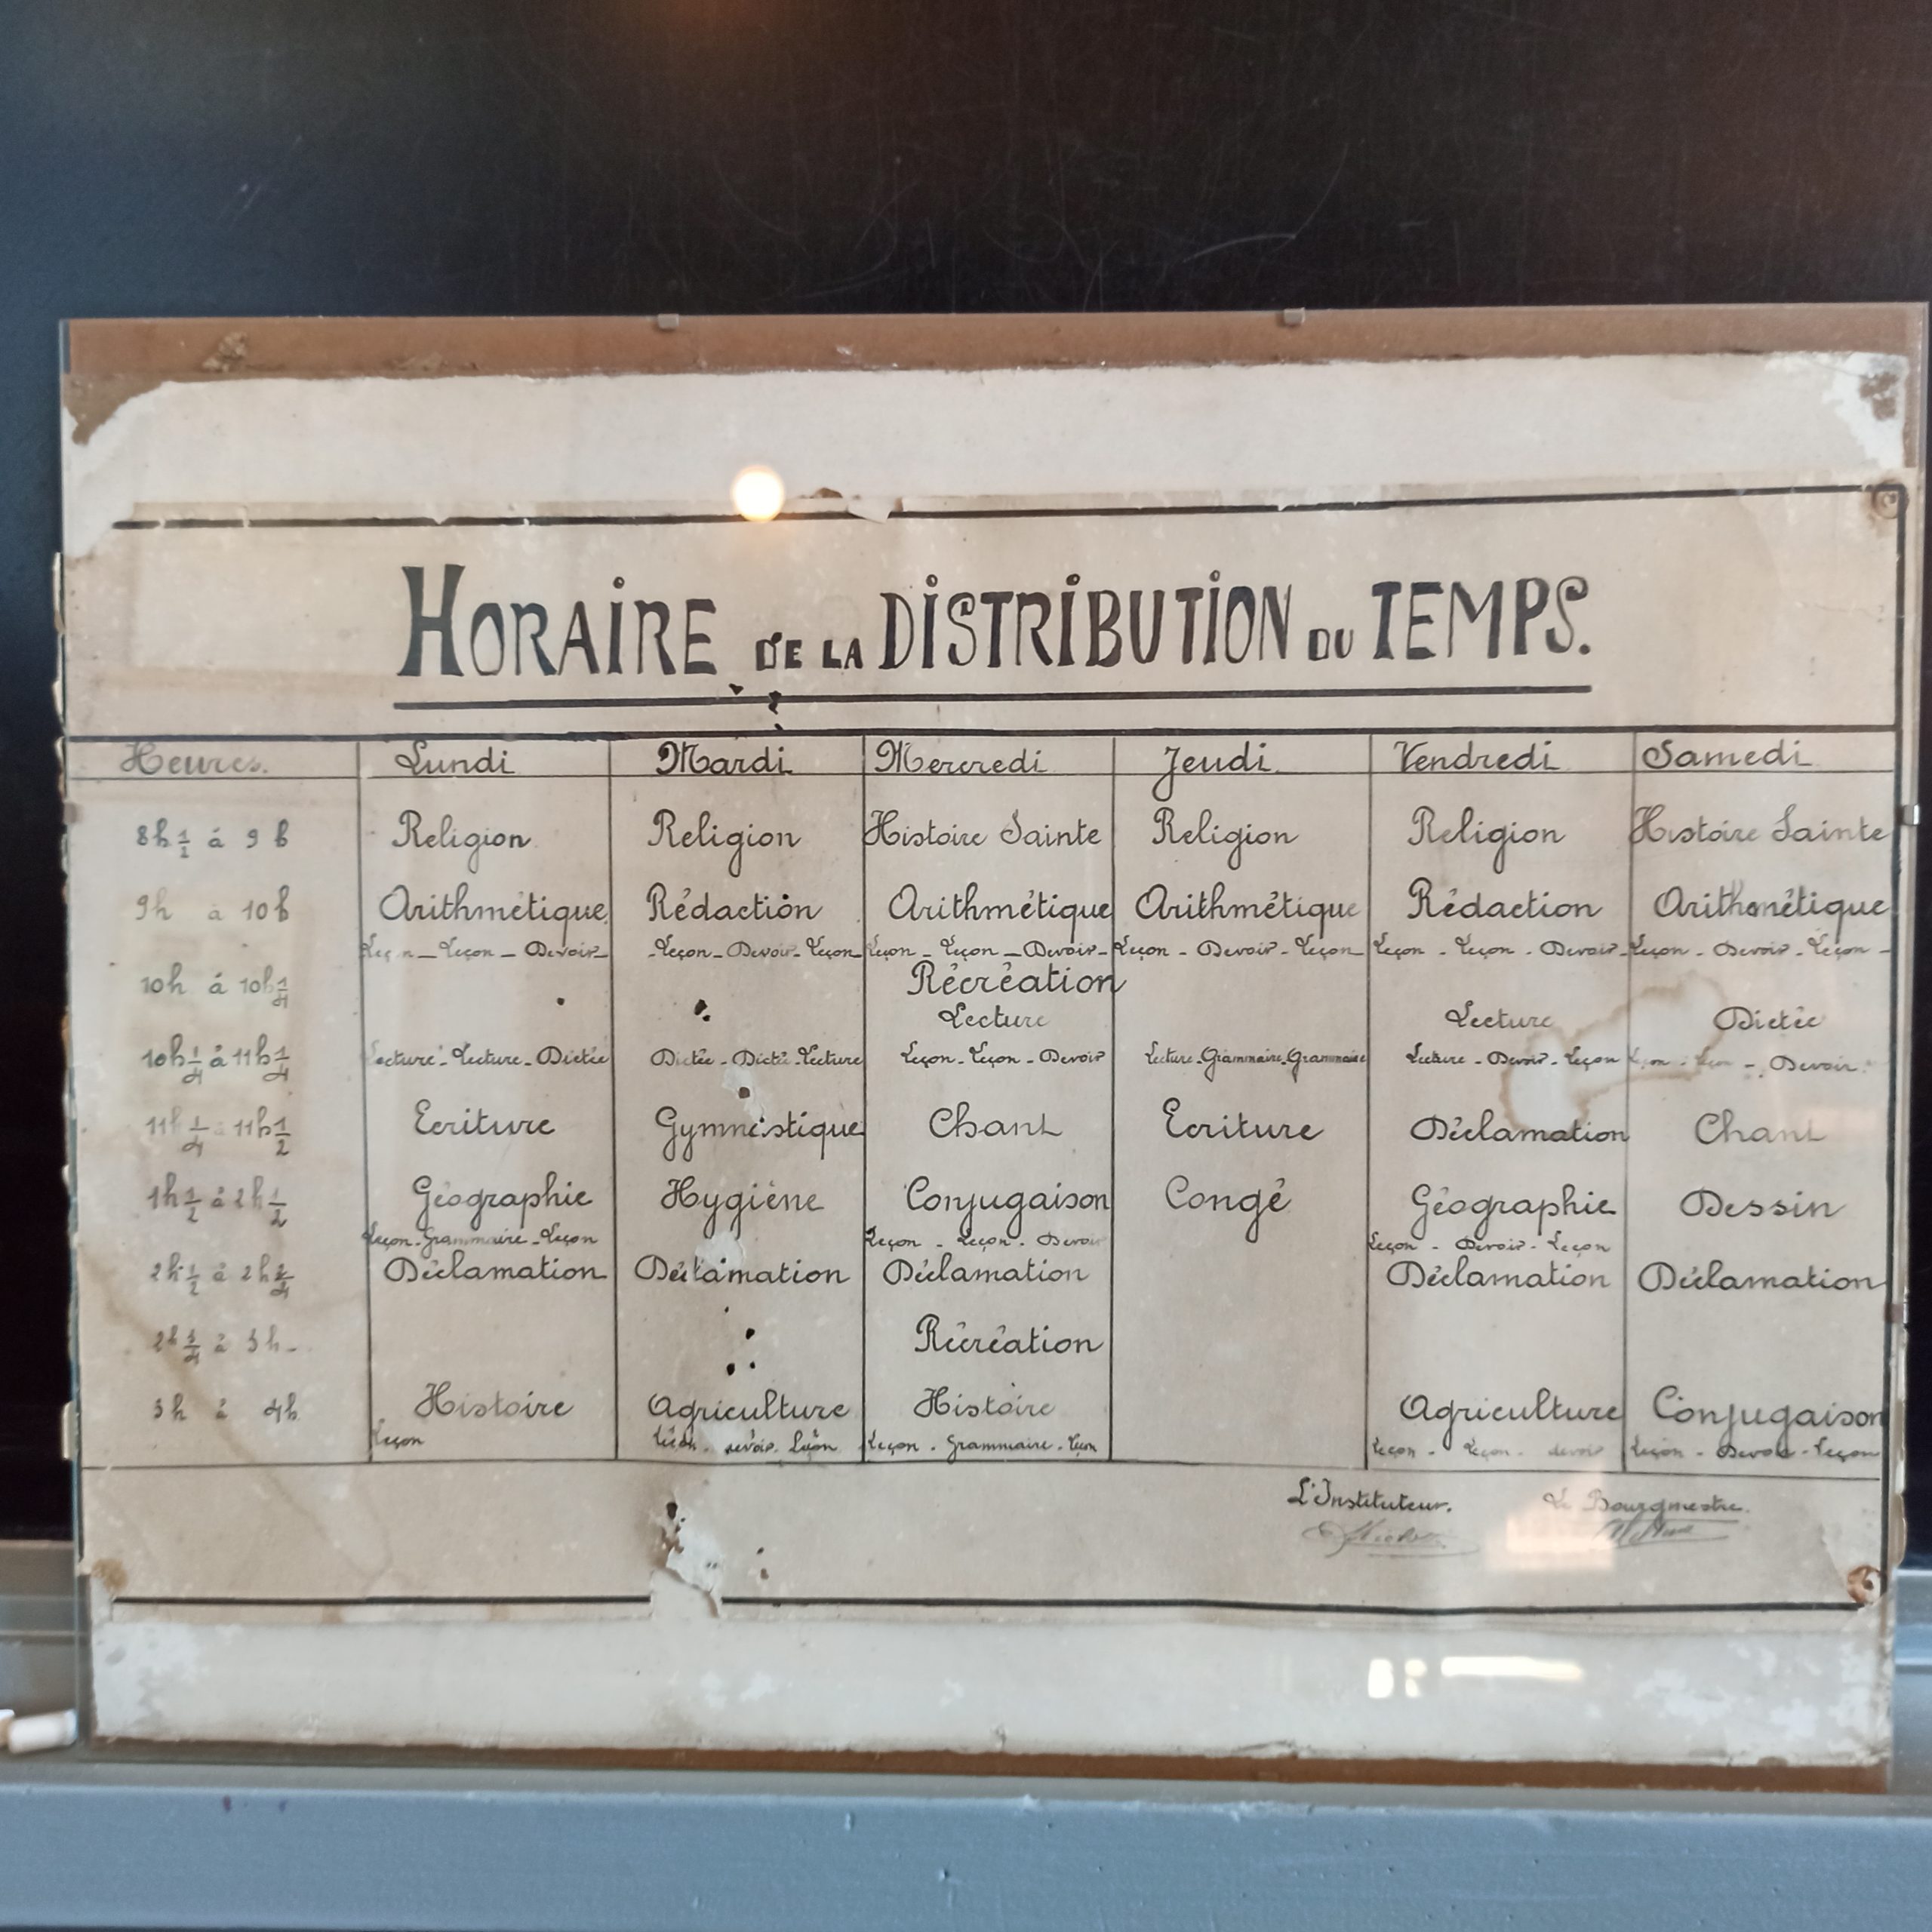 HORAIRE DE LA DISTRIBUTION DU TEMPS.
Heures. Lundi Mardi Mercredi Jeudi Vendredi Samedi
8h 1/2 à 9h Religion Religion Histoire Sainte Religion Religion Histoire Sainte
9h à 10h Arithmétique Rédaction Arithmétique Arithmétique Rédaction Arithmétique
Leçon - Leçon - Devoir - Leçon - Devoir - Leçon Leçon - Leçon - Devoir - Leçon - Devoir - Leçon Leçon - Leçon - Devoir - Leçon - Devoir - Leçon -
10h à 10h 1/4 Récréation
Lecture Lecture Dictée
10h 1/4 à 11h 1/4 Lecture - Lecture - Dictée Dictée - Dictée - Lecture Leçon - Leçon - Devoir Lecture - Grammaire - Grammaire Lecture - Devoir - Leçon Leçon - Leçon - Devoir
11h 1/4 à 11h 1/2 Ecriture Gymnastique Chant Ecriture Déclamation Chant
1h 1/2 à 2h 1/2 Géographie Hygiène Conjugaison Congé Géographie Dessin
Leçon - Grammaire - Leçon Leçon - Leçon - Devoir Leçon - Devoir - Leçon
2h 1/2 à 2h 3/4 Déclamation Déclamation Déclamation Déclamation Déclamation
2h 3/4 à 3h - Récréation
3h à 4h Histoire Agriculture Histoire Agriculture Conjugaison
Leçon Leçon - devoir - Leçon Leçon - Grammaire - Leçon Leçon - Leçon - devoir Leçon - Devoir - Leçon
L'Instituteur. Le Bourgmestre.